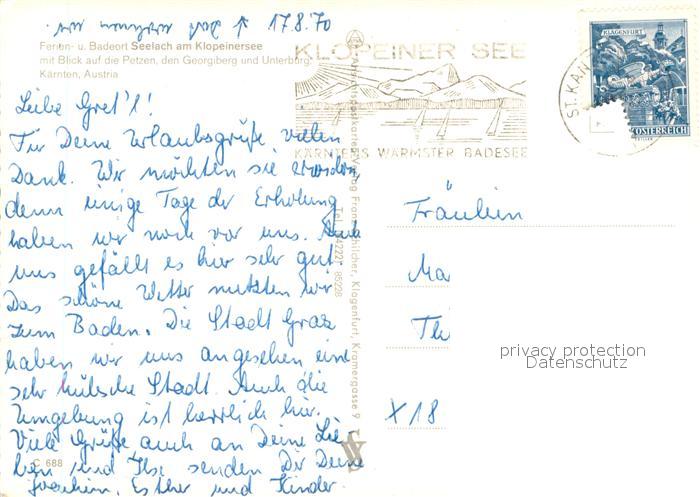 17.8.70
Ferien- u. Badeort Seelach am Klopeinersee
mit Blick auf die Petzen, den Georgiberg und Unterburg
Kärnten, Austria
Liebe Gret'l!
Für Deine Urlaubsgrüße vielen
Dank. Wir möchten sie erwidern,
denn einige Tage der Erholung
haben wir noch vor uns. Auch
uns gefällt es hier sehr gut.
Das schöne Wetter nutzten wir
zum Baden. Die Stadt Graz
haben wir uns angesehen eine
sehr hübsche Stadt. Auch die
Umgebung ist herrlich hier.
Viele Grüße auch an Deine Lie-
ben und Ihr senden Dir Deine
Joachim, Esther und Kinder.
C 688
KLOPEINER SEE
KÄRNTENS WÄRMSTER BADESEE
Ansichtskarten-Verlag Franz Schilcher, Klagenfurt, Kramergasse 9
85228
ST. KAN
KLAGENFURT
ÖSTERREICH
Fräulein
Ma
X 18
privacy protection
Datenschutz